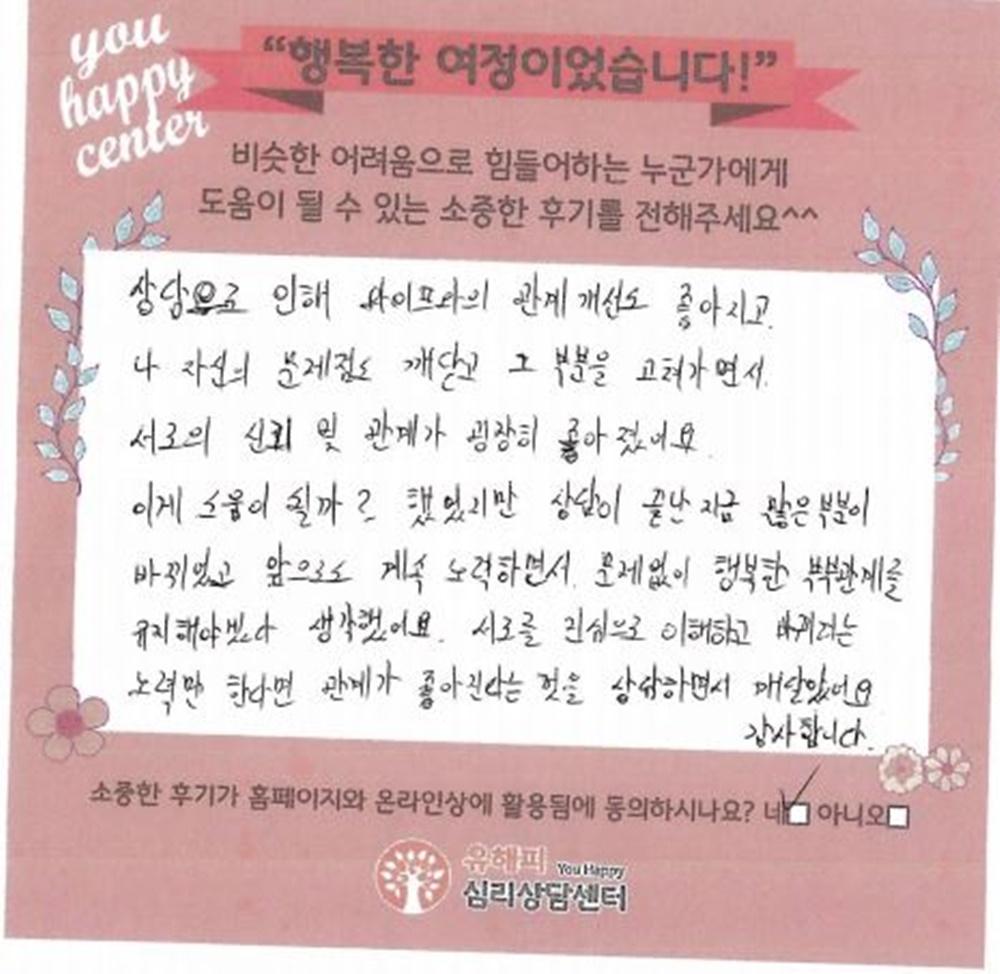 you
happy
center
“행복한 여정이었습니다!”
비슷한 어려움으로 힘들어하는 누군가에게
도움이 될 수 있는 소중한 후기를 전해주세요^^
상담으로 인해 와이프와의 관계 개선도 좋아지고.
나 자신의 문제점도 깨닫고 그 부분을 고쳐가면서.
서로의 신뢰 및 관계가 굉장히 좋아졌어요.
이게 도움이 될까? 했었지만 상담이 끝난 지금 많은 부분이
바뀌었고 앞으로도 계속 노력하면서. 문제없이 행복한 부부관계를
유지해야겠다 생각했어요. 서로를 진심으로 이해하고 바뀌려는
노력만 한다면 관계가 좋아진다는 것을 상담하면서 깨달았어요
감사합니다.
소중한 후기가 홈페이지와 온라인상에 활용됨에 동의하시나요? 네 아니오
유해피 You Happy
심리상담센터